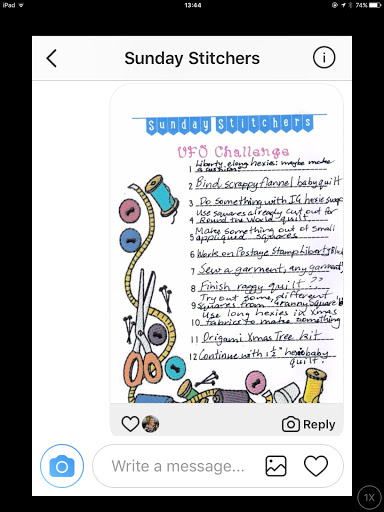 iPad
13:44
74%
Sunday Stitchers
Sunday Stitchers
UFO Challenge
1 Liberty elong hexies: maybe make
a cushion?
2 Bind scrappy flannel baby quilt
3 Do something with IG hexie swap
Use squares already cut out for
4 Round the World quilt
Make something out of small
5 appliqued squares
6 Works on Postage Stamp Liberty
7 Sew a garment, any garment!
8 Finish raggy quilt ??
Try out some, different
9 squares from Granny Square
Use long hexies in Xmas
10 fabrics to make something
11 Origami Xmas Tree kit
12 Continue with 1½" hexie baby
quilt.
Reply
Write a message...
1X